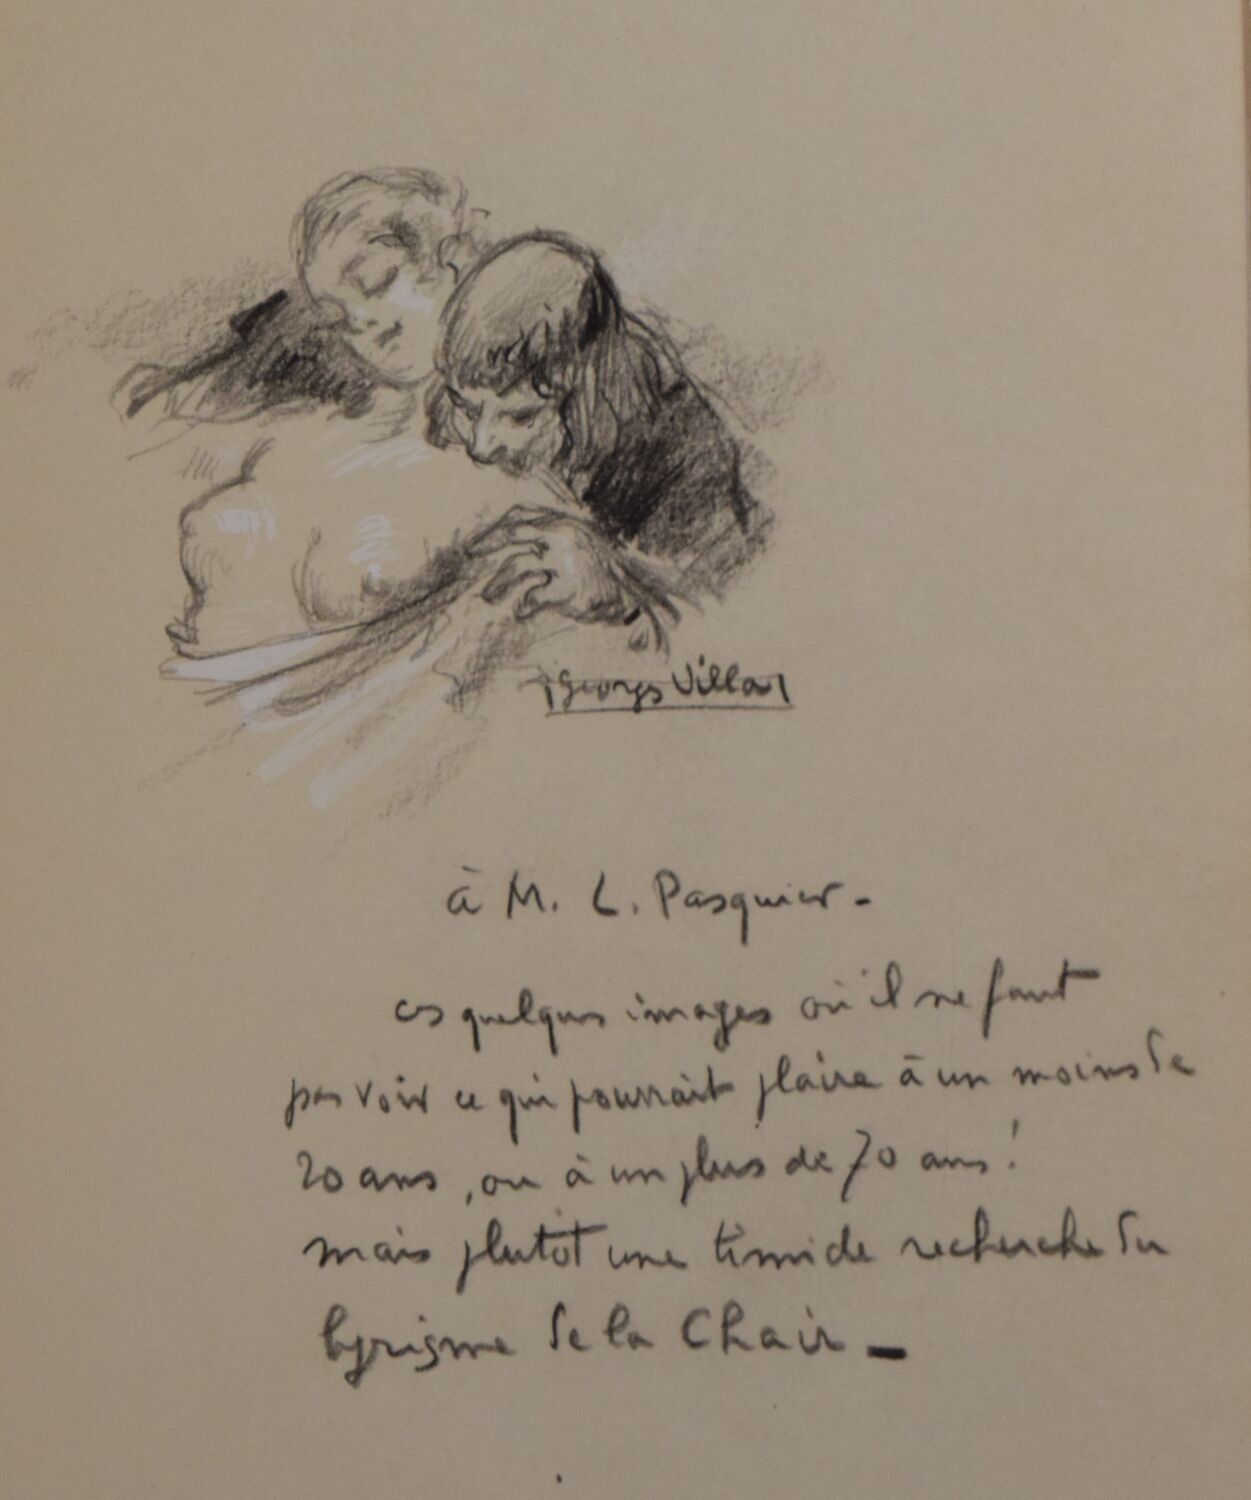 Georges Villa
à M. L. Pasquier -
ces quelques images où il ne faut
pas voir ce qui pourrait plaire à un moins de
20 ans, ou à un plus de 70 ans !
mais plutôt une timide recherche du
lyrisme de la Chair -